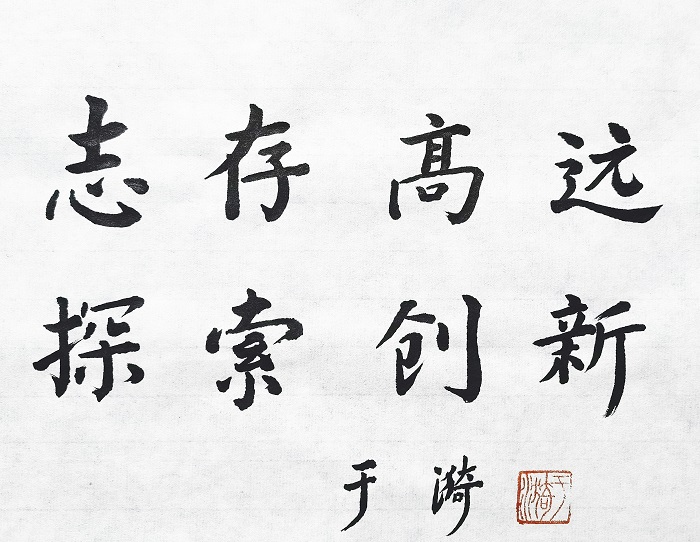 志存高远
探索创新
于漪
于漪